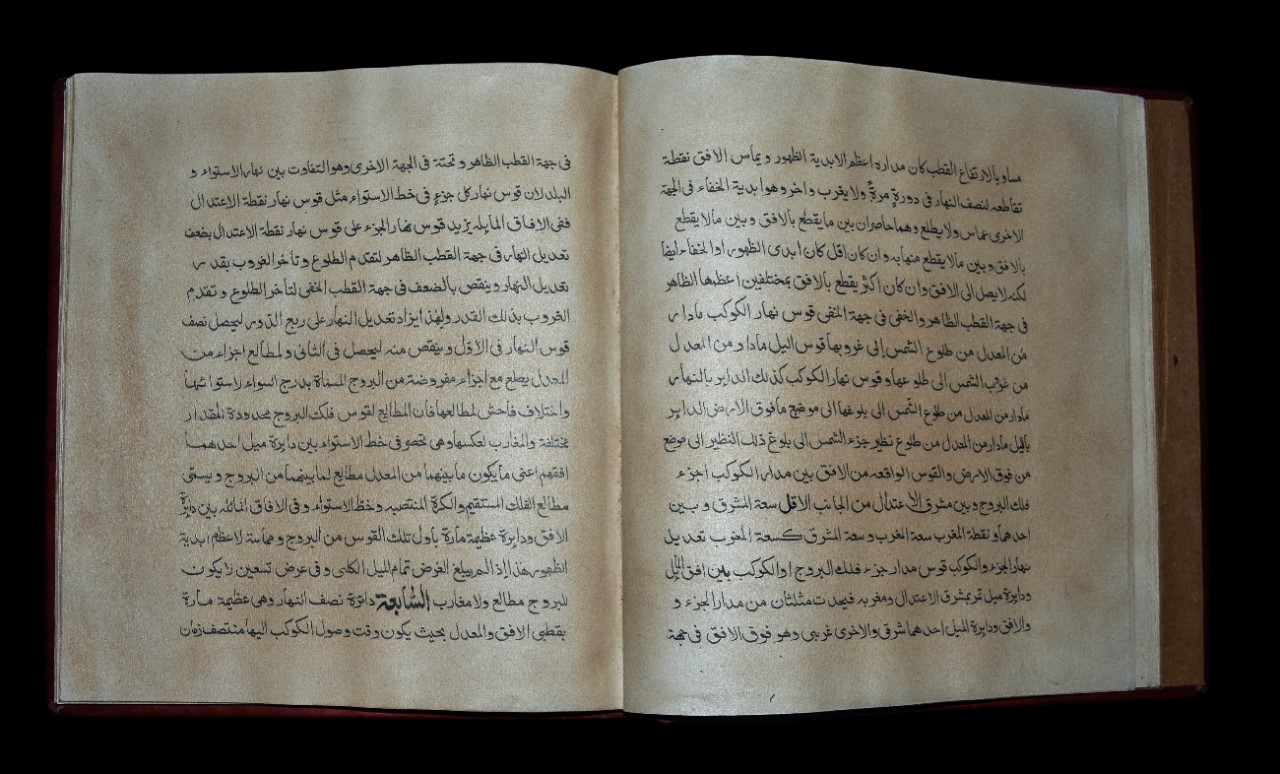 مساويا لارتفاع القطب كان مداره اعظم الابدية الظهور و يماس الافق نقطة
تقاطعه لنصف النهار في دورة مرةً ولا يغرب واخر وهو ابدية الخفاء في الجهة
الاخرى يماس ولا يطلع وهما حاصران بين ما يقطع بالافق وبين ما لا يقطع
بالافق و بين ما لا يقطع منهما به وان كان اقل كان ابدى الظهور او الخفاء ايضا
لكنه لا يصل الى الافق وان كان اكثر يقطع بالافق بمختلفين اعظمها الظاهر
في جهة القطب الظاهر والخفى في جهة الخفى قوس نهار الكوكب ما دار
من المعدل من طلوع الشمس الى غروبها قوس اليل ما دار من المعدل
من غروب الشمس الى طلوعها و قوس نهار الكوكب كذلك الداير بالنهار
ما دار من المعدل من طلوع الشمس الى بلوغها الى موضع ما فوق الارض الداير
بالليل ما دار من المعدل من طلوع نظير جزء الشمس الى بلوغ ذلك النظير الى موضع
من فوق الارض والقوس الواقعه من الافق بين مدار الكوكب اجزء
فلك البروج و بين مشرق الاعتدال من الجانب الاقل سعة المشرق و بين
احدهما و نقطة المغرب سعة المغرب و سعة المشرق كسعة المغرب تعديل
نهار الجزء والكوكب قوس مدار جزء فلك البروج او الكوكب بين افق الليل
ودايرة ميل تمر بمشرق الاعتدال و مغربه فيحدث مثلثان من مدار الجزء و
والافق ودايرة الميل احدهما شرقى والاخرى غربى وهو فوق الافق في جهة
في جهة القطب الظاهر و تحتة في الجهة الاخرى وهو التفاوت بين نهار الاستواء و
البلد لان قوس نهار كل جزءٍ في خط الاستواء مثل قوس نهار نقطة الاعتدال
ففى الافاق المايله يزيد قوس نهار الجزء على قوس نهار نقطة الاعتدال بضعف
تعديل النهار في جهة القطب الظاهر لتقدم الطلوع و تأخر الغروب بقدر
تعديل النهار و ينقص بالضعف في جهة القطب الخفى لتأخر الطلوع و تقدم
الغروب بذلك القدر ولهذا يزاد تعديل النهار على ربع الدور ليحصل نصف
قوس النهار في الاول و ينقص منه ليحصل في الثانى ولمطالع اجزاء من
المعدل يطلع مع اجزاء مفروضة من البروج المسماة بدرج السواء لاستوائها
واختلاف فاحش لمطالعها فان المطالع لقوس فلك البروج محدودة المقدار
مختلفة والمغارب لعكسها وهى تحصر في خط الاستواء بين دايرة ميل احدهما
افقهم اعنى ما يكون ما بينهما من المعدل مطالع لما بينهما من البروج و يسمى
مطالع الفلك المستقيم والكرة المنتصبه وخط الاستواء و في الافاق المائله بين دايرة
الافق ودايرة عظيمة مارة باول تلك القوس من البروج و مماسة لاعظم ابدية
الظهور هذا اذا لم يبلغ العرض تمام الميل الكلى و في عرض تسعين لا يكون
للبروج مطالع ولا مغارب السابعة دائرة نصف النهار وهى عظيمة مارة
بقطبى الافق والمعدل بحيث يكون وقت وصول الكوكب اليها منتصف زمان